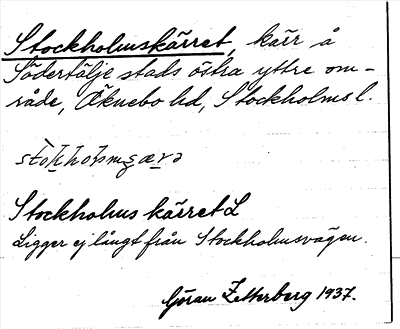 Stockholmskärret, kärr å
Södertälje stads östra yttre om-
råde, Öknebo hd, Stockholms l.
Stockholms kärret L
Ligger ej långt från Stockholmsvägen.
Göran Zetterberg 1937.